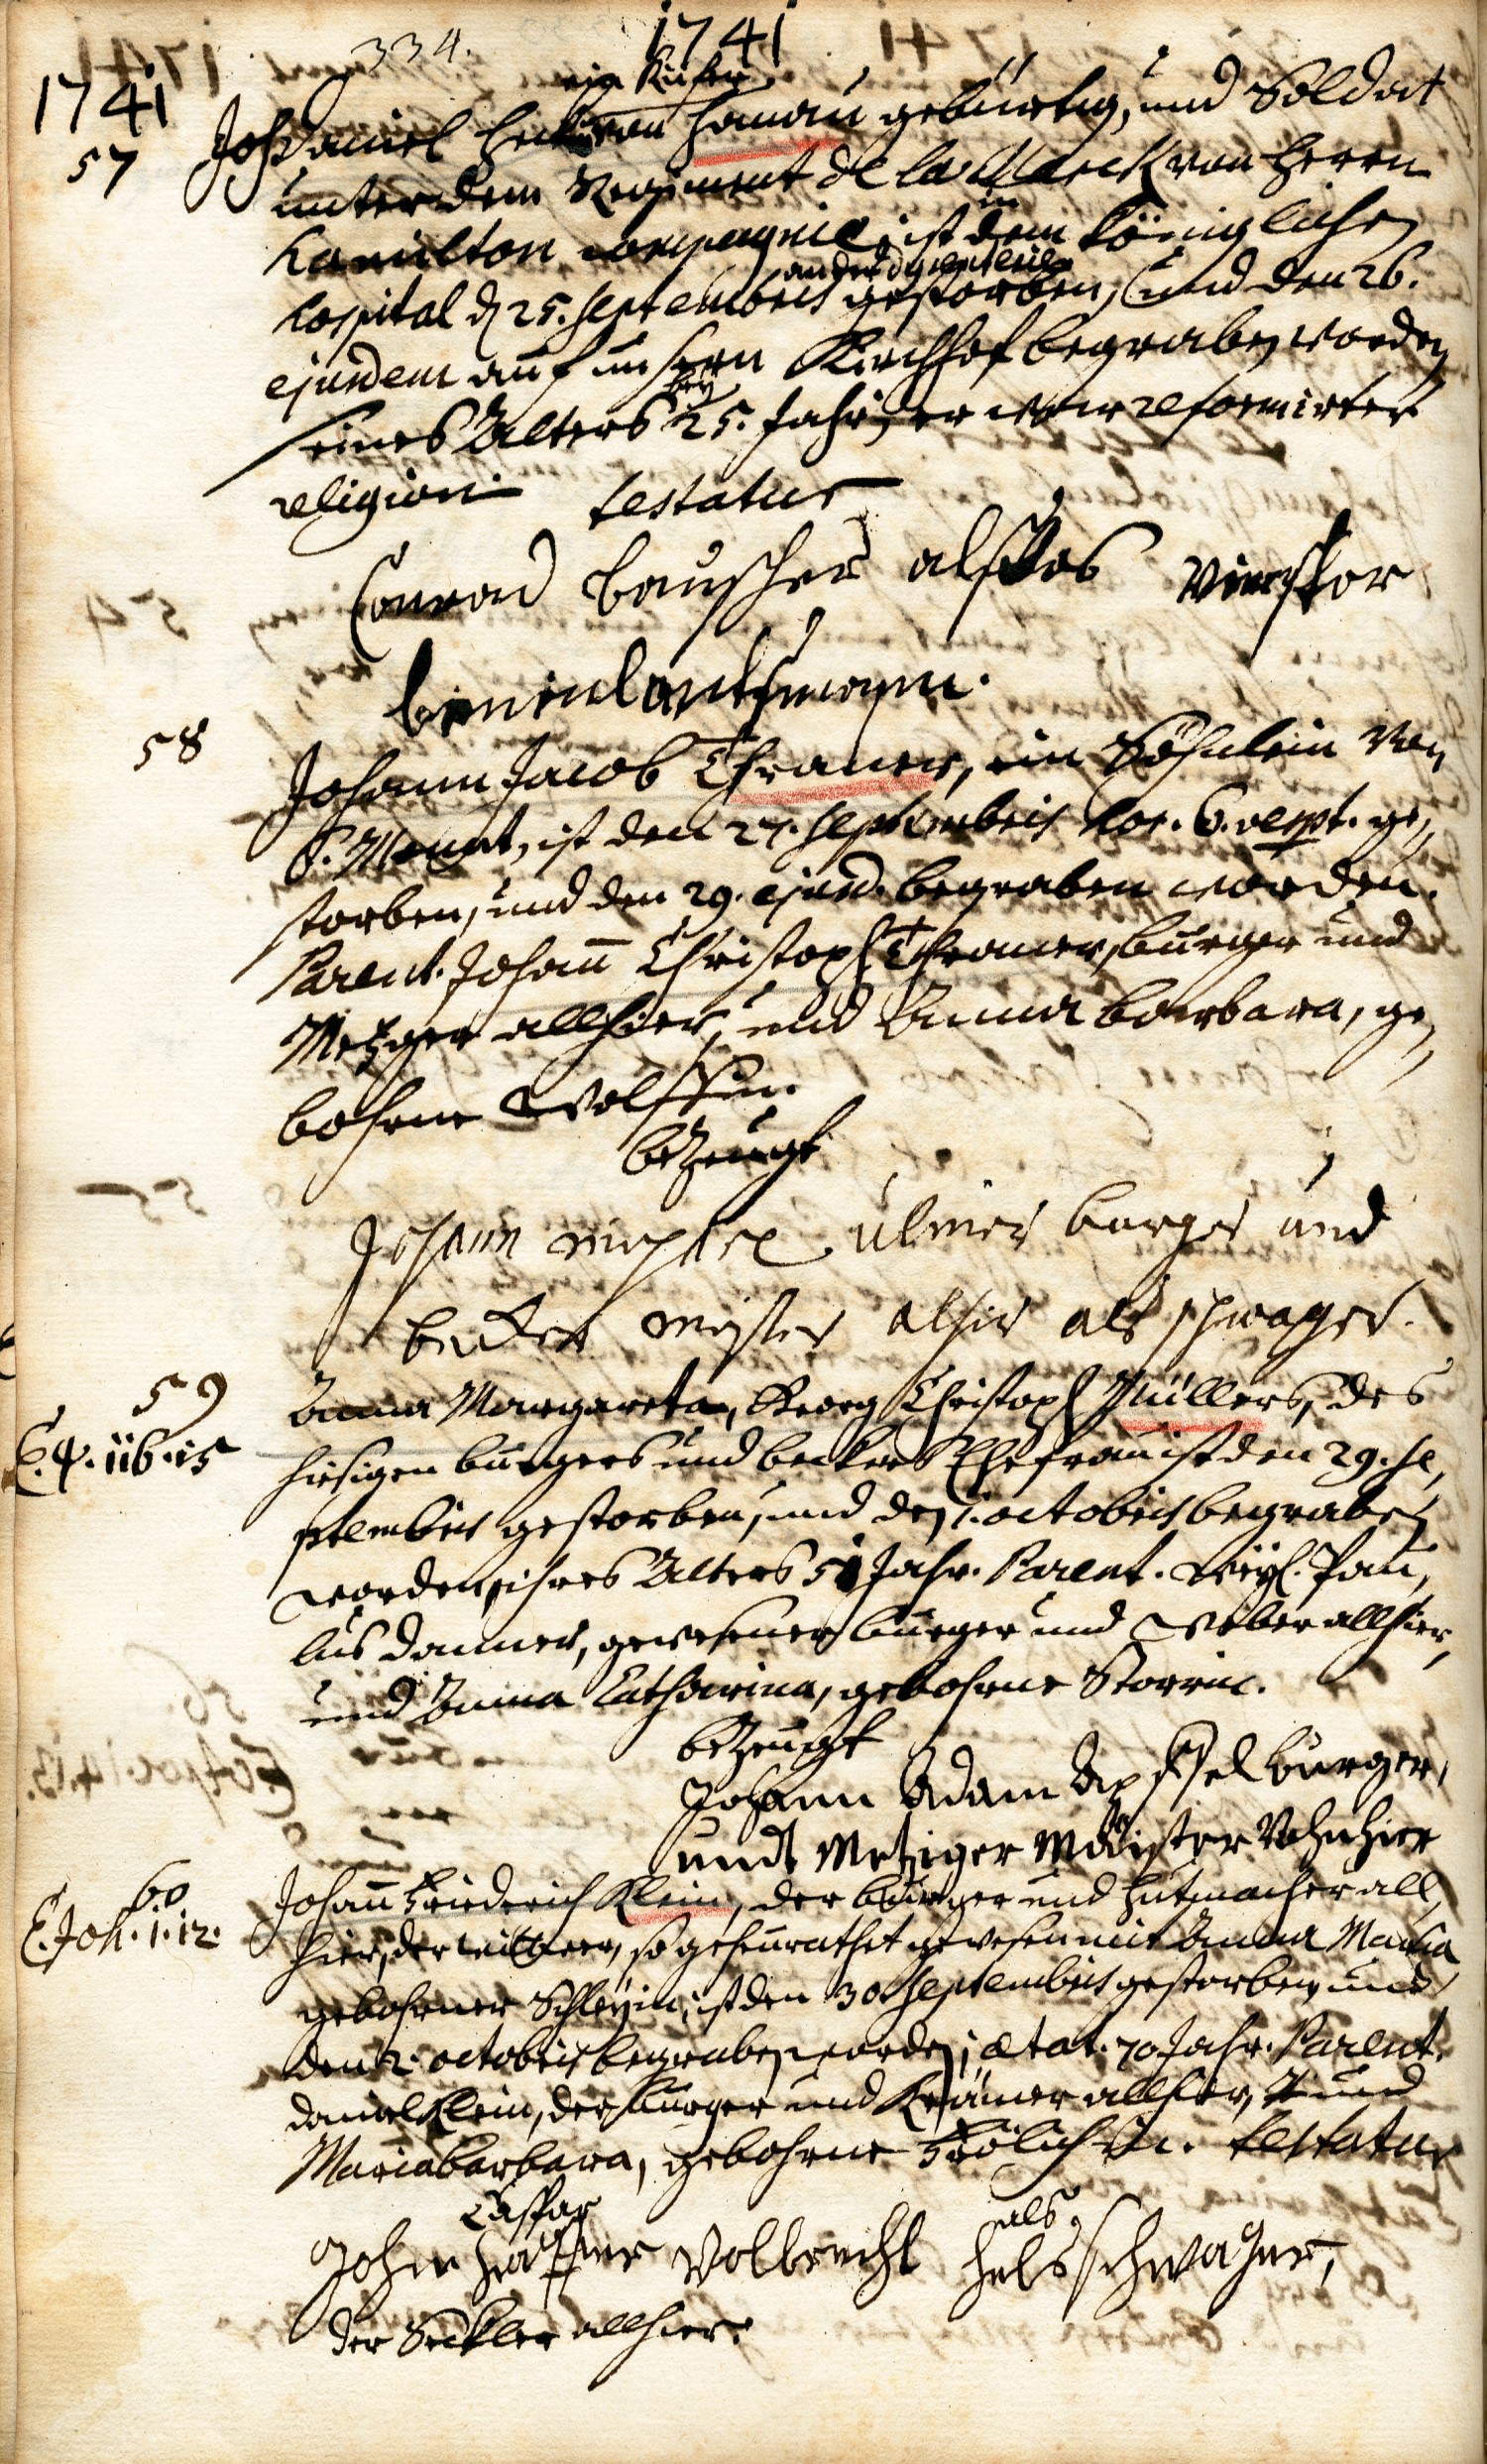 334.
1741
1741
57
ein Küfer
Joh Daniel von Hanau gebürtig, und Soldat
unter dem Regiment de la Marck von Herrn
Hamilton compagnie, ist in dem Königlichen
Hospital d. 25. septembris an der dysenterie gestorben, und den 26.
ejusdem auf unsern Kirchhof begraben worden
seines Alters bey 25. Jahr, er war reformirter
religion. testatur
Conrad Bauscher als
58
Johann Jacob Thraner, ein Söhnlein von
Monat, ist den 27. septembris hor. 6. vesp. ge,,
storben, und den 29. ejusd. begraben worden.
Parent. Johann Christoph Thraner, burger und
Metzger allhier, und Anna Barbara, ge,,
bohrne Wolffin.
bezeugt
Johann michael ulmer burger und
becker meister alhir als schwager.
59
116.15
Anna Margareta, Georg Christoph Müllers, des
hiesigen burgers und beckers Ehefrau ist den 29. se,
ptembris gestorben, und den 1. octobris begraben
worden, ihres Alters 51 Jahr. Parent. weyl. Pau,
lus Danner, gewesener burger und Weber allhier,
und Anna Catharina, gebohrne Storrin.
bezeugt
Johann Adam Apffel burger,
undt Metziger Meister
60
E. Joh. 1. 12.
Johann Friederich Klein, der burger und Hutmacher all,
hier, der wittwer, so geheurathet gewesen mit Anna Maria
gebohrner Schleyin, ist den 30. septembris gestorben, und
den 2. octobris begraben worden; aetat. 70 Jahr. Parent.
Daniel Klein, der burger und Krämer allhier, und
Maria Barbara, gebohrne Frölichin. testatur
Caspar
Johann Volbrecht als schwager,
der Seckler allhier.